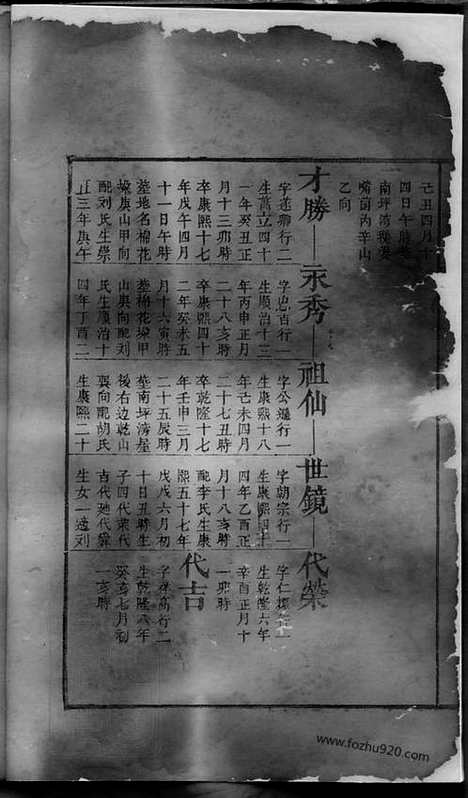 己丑四月十
四日午時
南坪
嘴前丙辛山
乙向
才勝
字蓮卿行二
生萬立四十
一年癸丑正
月十三卯時
卒康熙十七
年戊午四月
十一日午時
墓地名棉花
垛庚山甲向
配刘氏生崇
正三年庚午
永秀
字忠百行一
生順治十三
年丙申正月
二十八亥時
卒康熙四十
二年癸未五
月十六寅時
墓棉花垛甲
山庚向配刘
氏生順治十
四年丁酉二
祖仙
字公遠行一
生康熙十八
年己未四月
二十七丑時
卒乾隆十七
年壬申三月
二十五辰時
墓南坪湾屋
後右边乾山
巽向配胡氏
生康熙二十
世鏡
字朝宗行二
生康熙四十
四年乙酉正
月十八亥時
配李氏生康
熙五十七年
戊戌六月初
十日丑時生
子四代荣代
吉代 代
生女一适刘
代榮
字仁 行一
生乾隆六年
辛酉正月十
一卯時
代吉
字祥 行二
生乾隆八年
癸亥七月初
一亥時
www.fozhu920.com